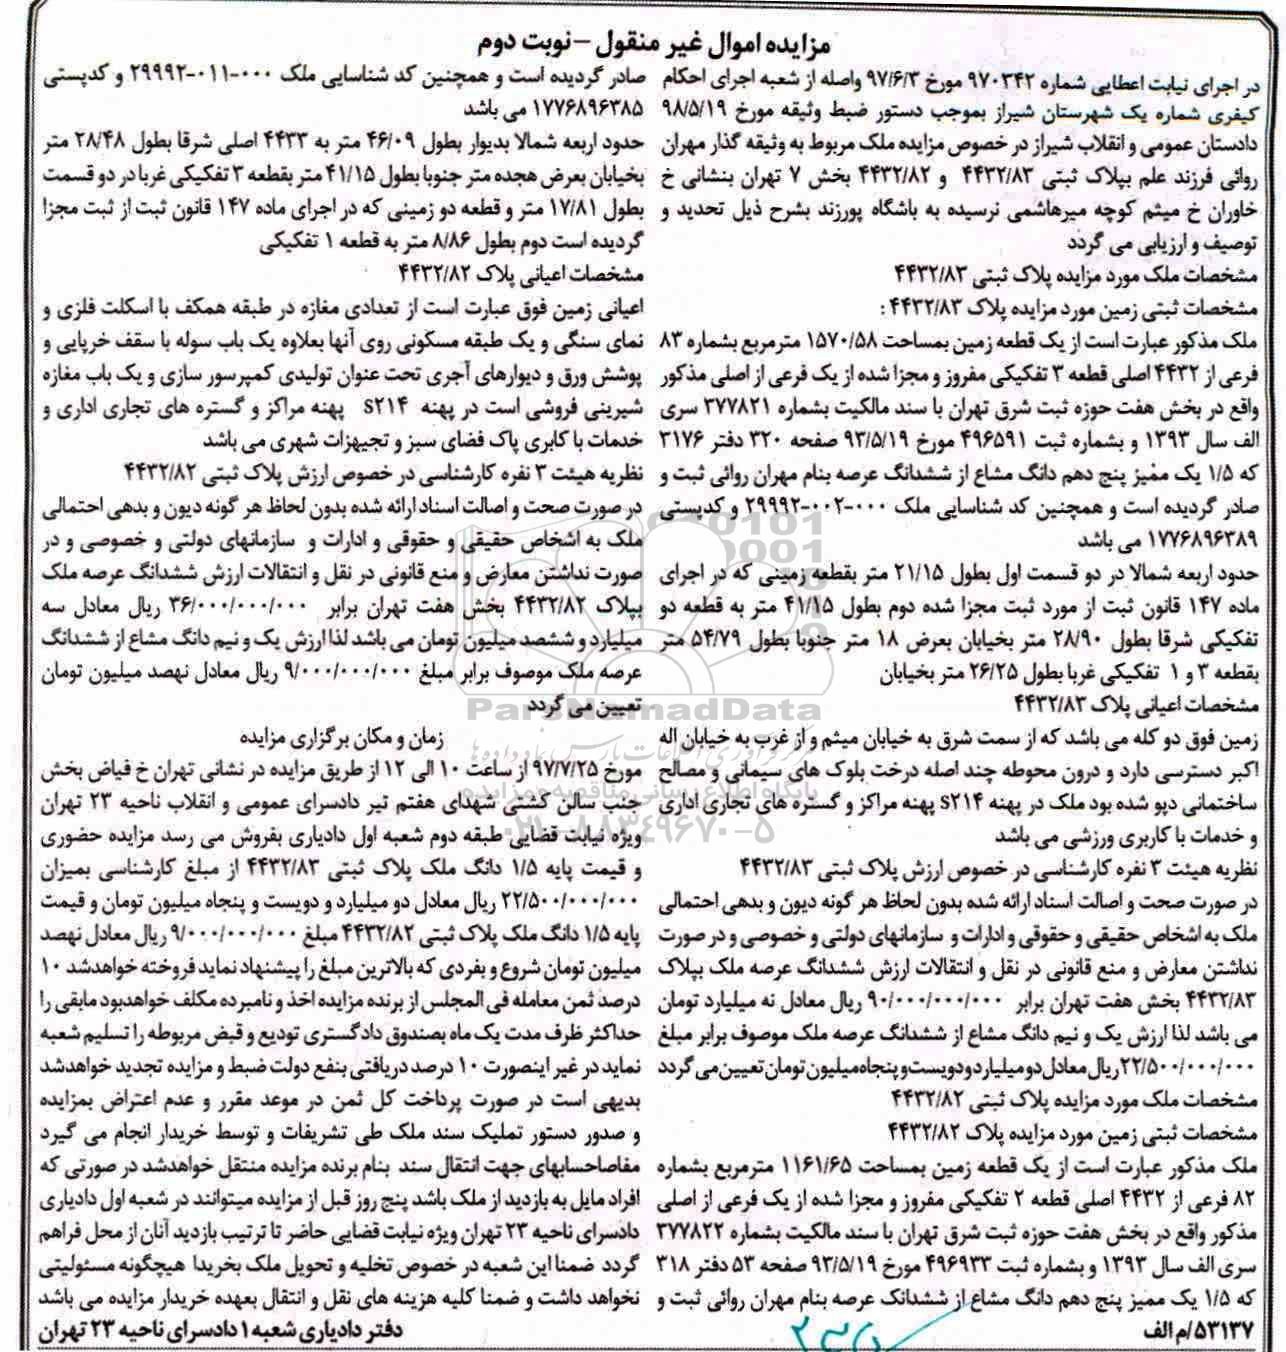 مزایده اموال غیر منقول – نوبت دوم
در اجرای نیابت اعطایی شماره ۹۷۰۳۴۲ مورخ ۹۷/۶/۳ واصله از شعبه اجرای احکام
کیفری شماره یک شهرستان شیراز بموجب دستور ضبط وثیقه مورخ ۹۸/۵/۱۹
دادستان عمومی و انقلاب شیراز در خصوص مزایده ملک مربوط به وثیقه گذار مهران
روائی فرزند علم بپلاک ثبتی ۴۴۳۲/۸۳ و ۴۴۳۲/۸۲ بخش ۷ تهران بنشانی خ
خاوران خ میثم کوچه میرهاشمی نرسیده به باشگاه پورزند بشرح ذیل تحدید و
توصیف و ارزیابی می گردد
مشخصات ملک مورد مزایده پلاک ثبتی ۴۴۳۲/۸۳
مشخصات ثبتی زمین مورد مزایده پلاک ۴۴۳۲/۸۳ :
ملک مذکور عبارت است از یک قطعه زمین بمساحت ۱۵۷۰/۵۸ مترمربع بشماره ۸۳
فرعی از ۴۴۳۲ اصلی قطعه ۳ تفکیکی مفروز و مجزا شده از یک فرعی از اصلی مذکور
واقع در بخش هفت حوزه ثبت شرق تهران با سند مالکیت بشماره ۳۷۷۸۲۱ سری
الف سال ۱۳۹۳ و بشماره ثبت ۴۹۶۵۹۱ مورخ ۹۳/۵/۱۹ صفحه ۳۲۰ دفتر ۳۱۷۶
که ۱/۵ یک ممیز پنج دهم دانگ مشاع از ششدانگ عرصه بنام مهران روائی ثبت و
صادر گردیده است و همچنین کد شناسایی ملک ۰۰۰-۰۰۲-۲۹۹۹۲ و کدپستی
۱۷۷۶۸۹۶۳۸۹ می باشد
حدود اربعه شمالا در دو قسمت اول بطول ۲۱/۱۵ متر بقطعه زمینی که در اجرای
ماده ۱۴۷ قانون ثبت از مورد ثبت مجزا شده دوم بطول ۴۱/۱۵ متر به قطعه دو
تفکیکی شرقا بطول ۲۸/۹۰ متر بخیابان بعرض ۱۸ متر جنوبا بطول ۵۴/۷۹ متر
بقطعه ۳ و ۱ تفکیکی غربا بطول ۲۶/۲۵ متر بخیابان
مشخصات اعیانی پلاک ۴۴۳۲/۸۳
زمین فوق دو کله می باشد که از سمت شرق به خیابان میثم و از غرب به خیابان اله
اکبر دسترسی دارد و درون محوطه چند اصله درخت بلوک های سیمانی و مصالح
ساختمانی دپو شده بود ملک در پهنه S۲۱۴ پهنه مراکز و گستره های تجاری اداری
و خدمات با کاربری ورزشی می باشد
نظریه هیئت ۳ نفره کارشناسی در خصوص ارزش پلاک ثبتی ۴۴۳۲/۸۳
در صورت صحت و اصالت اسناد ارائه شده بدون لحاظ هر گونه دیون و بدهی احتمالی
ملک به اشخاص حقیقی و حقوقی و ادارات و سازمانهای دولتی و خصوصی و در صورت
نداشتن معارض و منع قانونی در نقل و انتقالات ارزش ششدانگ عرصه ملک بپلاک
۴۴۳۲/۸۳ بخش هفت تهران برابر ۹۰/۰۰۰/۰۰۰/۰۰۰ ریال معادل نه میلیارد تومان
می باشد لذا ارزش یک و نیم دانگ مشاع از ششدانگ عرصه ملک موصوف برابر مبلغ
۲۲/۵۰۰/۰۰۰/۰۰۰ ریال معادل دو میلیارد و دویست و پنجاه میلیون تومان تعیین می گردد
مشخصات ملک مورد مزایده پلاک ثبتی ۴۴۳۲/۸۲
مشخصات ثبتی زمین مورد مزایده پلاک ۴۴۳۲/۸۲
ملک مذکور عبارت است از یک قطعه زمین بمساحت ۱۱۶۱/۶۵ مترمربع بشماره
۸۲ فرعی از ۴۴۳۲ اصلی قطعه ۲ تفکیکی مفروز و مجزا شده از یک فرعی از اصلی
مذکور واقع در بخش هفت حوزه ثبت شرق تهران با سند مالکیت بشماره ۳۷۷۸۲۲
سری الف سال ۱۳۹۳ و بشماره ثبت ۴۹۶۹۳۳ مورخ ۹۳/۵/۱۹ صفحه ۵۳ دفتر ۳۱۸
که ۱/۵ یک ممیز پنج دهم دانگ مشاع از ششدانگ عرصه بنام مهران روائی ثبت و
صادر گردیده است و همچنین کد شناسایی ملک ۰۰۰-۰۱۱-۲۹۹۹۲ و کدپستی
۱۷۷۶۸۹۶۳۸۵ می باشد
حدود اربعه شمالا بدیوار بطول ۴۶/۰۹ متر به ۴۴۳۳ اصلی شرقا بطول ۲۸/۴۸ متر
بخیابان بعرض هجده متر جنوبا بطول ۴۱/۱۵ متر بقطعه ۳ تفکیکی غربا در دو قسمت
بطول ۱۷/۸۱ متر و قطعه دو زمینی که در اجرای ماده ۱۴۷ قانون ثبت از ثبت مجزا
گردیده است دوم بطول ۸/۸۶ متر به قطعه ۱ تفکیکی
مشخصات اعیانی پلاک ۴۴۳۲/۸۲
اعیانی زمین فوق عبارت است از تعدادی مغازه در طبقه همکف با اسکلت فلزی و
نمای سنگی و یک طبقه مسکونی روی آنها بعلاوه یک باب سوله با سقف خرپایی و
پوشش ورق و دیوارهای آجری تحت عنوان تولیدی کمپرسور سازی و یک باب مغازه
شیرینی فروشی است در پهنه S۲۱۴ پهنه مراکز و گستره های تجاری اداری و
خدمات با کابری پاک فضای سبز و تجیهزات شهری می باشد
نظریه هیئت ۳ نفره کارشناسی در خصوص ارزش پلاک ثبتی ۴۴۳۲/۸۲
در صورت صحت و اصالت اسناد ارائه شده بدون لحاظ هر گونه دیون و بدهی احتمالی
ملک به اشخاص حقیقی و حقوقی و ادارات و سازمانهای دولتی و خصوصی و در
صورت نداشتن معارض و منع قانونی در نقل و انتقالات ارزش ششدانگ عرصه ملک
بپلاک ۴۴۳۲/۸۲ بخش هفت تهران برابر ۳۶/۰۰۰/۰۰۰/۰۰۰ ریال معادل سه
میلیارد و ششصد میلیون تومان می باشد لذا ارزش یک و نیم دانگ مشاع از ششدانگ
عرصه ملک موصوف برابر مبلغ ۹/۰۰۰/۰۰۰/۰۰۰ ریال معادل نهصد میلیون تومان
تعیین می گردد
زمان و مکان برگزاری مزایده
مورخ ۹۷/۷/۲۵ از ساعت ۱۰ الی ۱۲ از طریق مزایده در نشانی تهران خ فیاض بخش
جنب سالن کشتی شهدای هفتم تیر دادسرای عمومی و انقلاب ناحیه ۲۳ تهران
ویژه نیابت قضایی طبقه دوم شعبه اول دادیاری بفروش می رسد مزایده حضوری
و قیمت پایه ۱/۵ دانگ ملک پلاک ثبتی ۴۴۳۲/۸۳ از مبلغ کارشناسی بمیزان
۲۲/۵۰۰/۰۰۰/۰۰۰ ریال معادل دو میلیارد و دویست و پنجاه میلیون تومان و قیمت
پایه ۱/۵ دانگ ملک پلاک ثبتی ۴۴۳۲/۸۲ مبلغ ۹/۰۰۰/۰۰۰/۰۰۰ ریال معادل نهصد
میلیون تومان شروع و بفردی که بالاترین مبلغ را پیشنهاد نماید فروخته خواهدشد ۱۰
درصد ثمن معامله فی المجلس از برنده مزایده اخذ و نامبرده مکلف خواهدبود مابقی را
حداکثر ظرف مدت یک ماه بصندوق دادگستری تودیع و قبض مربوطه را تسلیم شعبه
نماید در غیر اینصورت ۱۰ درصد دریافتی بنفع دولت ضبط و مزایده تجدید خواهدشد
بدیهی است در صورت پرداخت کل ثمن در موعد مقرر و عدم اعتراض بمزایده
و صدور دستور تملیک سند ملک طی تشریفات و توسط خریدار انجام می گیرد
مفاصاحسابهای جهت انتقال سند بنام برنده مزایده منتقل خواهدشد در صورتی که
افراد مایل به بازدید از ملک باشد پنج روز قبل از مزایده میتوانند در شعبه اول دادیاری
دادسرای ناحیه ۲۳ تهران ویژه نیابت قضایی حاضر تا ترتیب بازدید آنان از محل فراهم
گردد ضمنا این شعبه در خصوص تخلیه و تحویل ملک بخریدا هیچگونه مسئولیتی
نخواهد داشت و ضمنا کلیه هزینه های نقل و انتقال بعهده خریدار مزایده می باشد
۵۳۱۳۷/م الف
دفتر دادیاری شعبه ۱ دادسرای ناحیه ۲۳ تهران
ParsNamadData
پایگاه اطلاع رسانی مناقصه و مزایده
۰۲۱-۸۸۳۴۹۶۷۰-۵